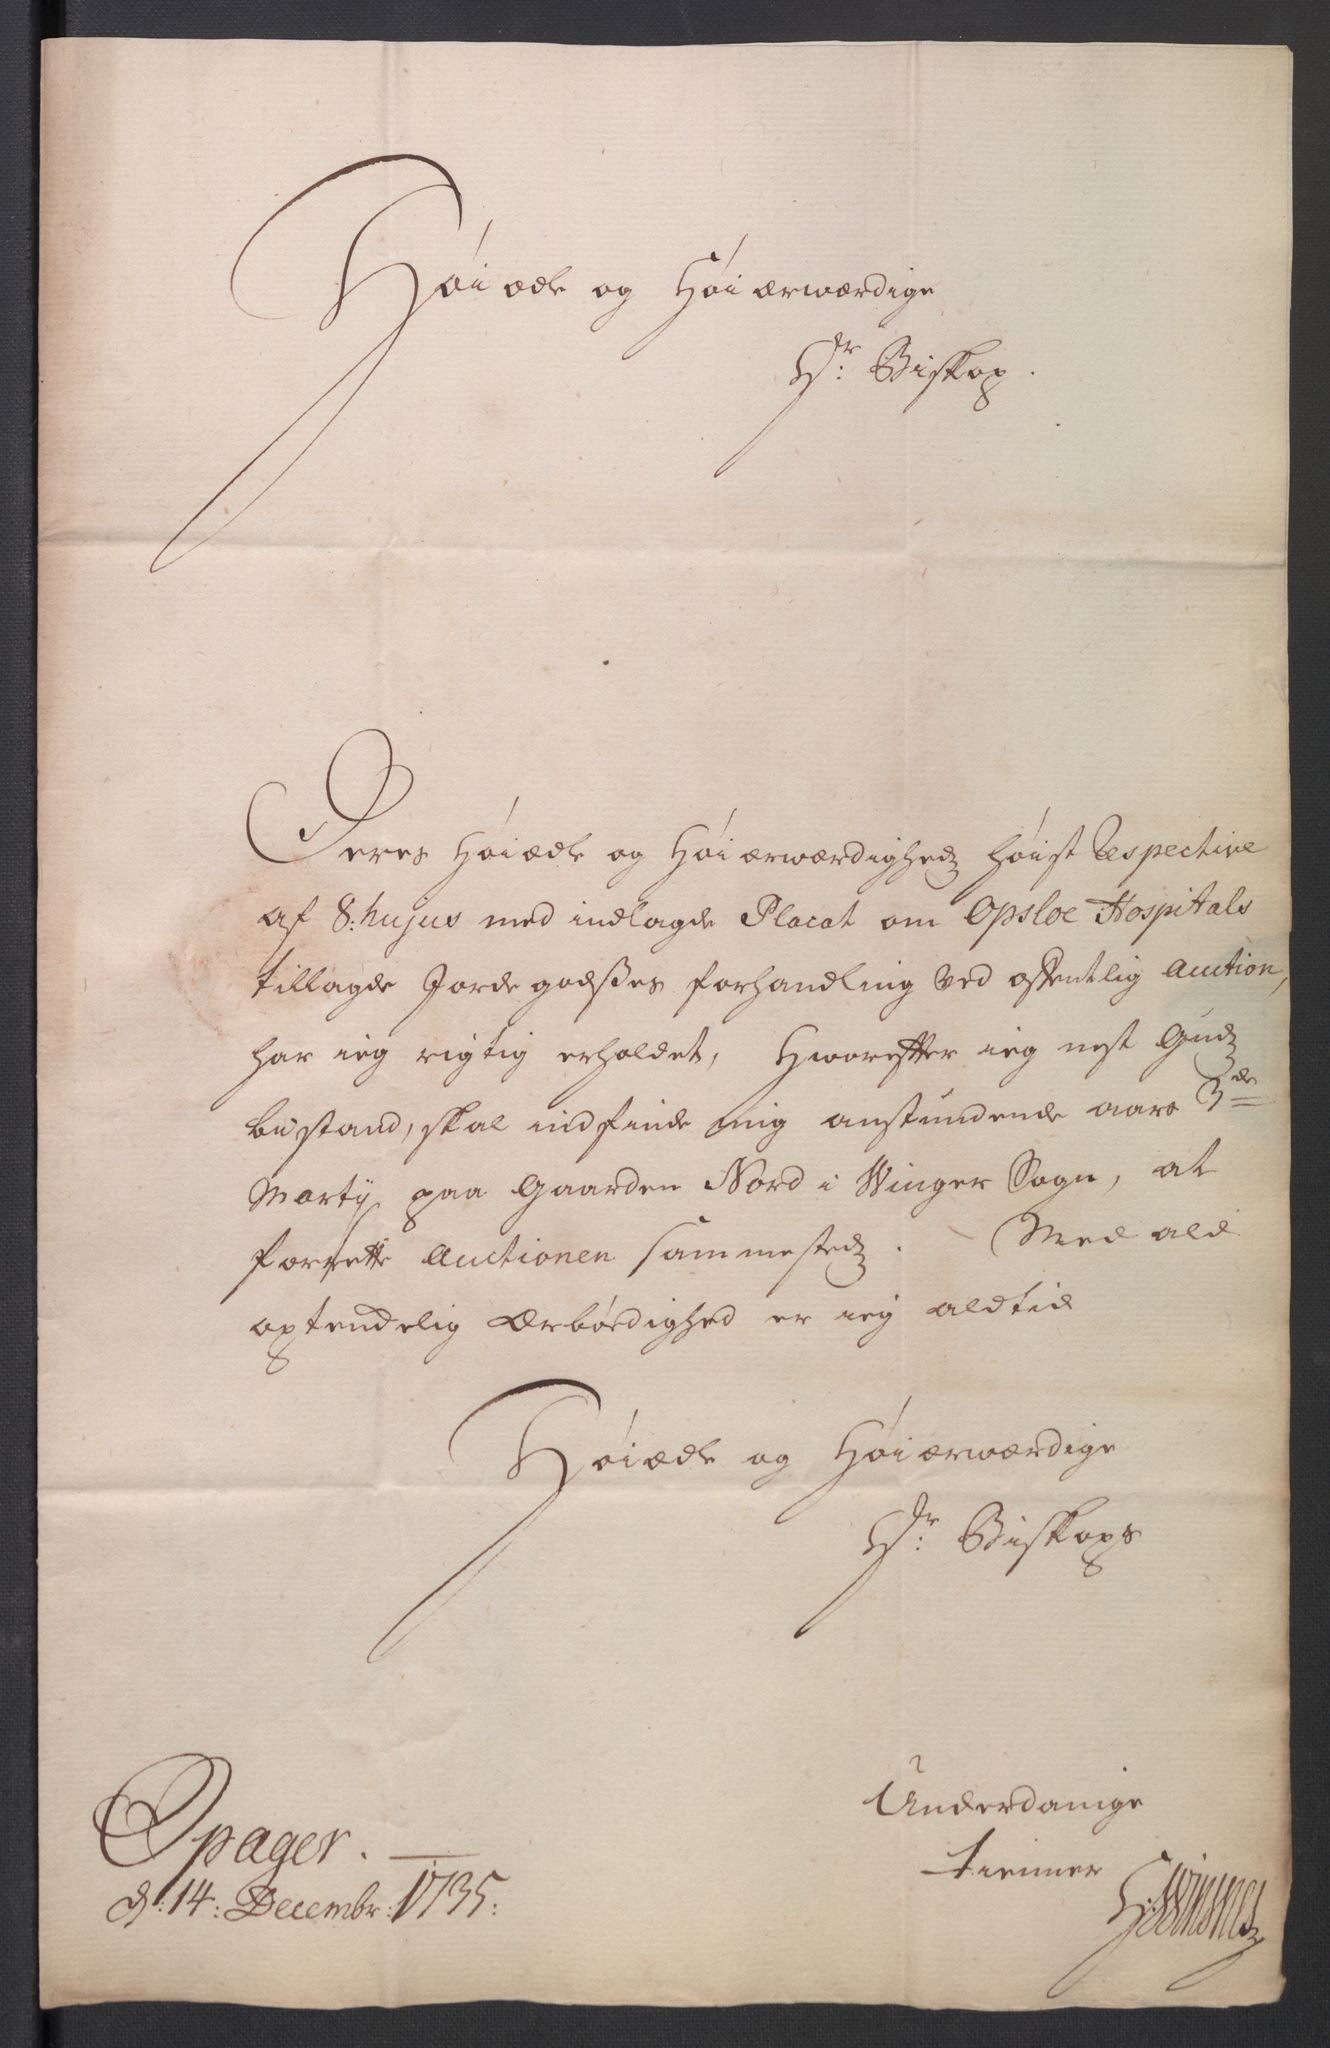 Høiædle og Høiærwærdige
Hr: Biskop.
Deres Høiædle og Høiærwærdigheds høist Respective
af 8: hujus med indlagde Placat om Opsloe Hospitals
tillagde Jordegodsses forhandling ved offentlig Auction,
har ieg rigtig erholdet, Hworefter ieg nest Guds
bistand, skal indfinde mig anstundende aars 3de
Martij paa Gaarden Nord i Winger Sogn, at
forrette Auctionen sammesteds. Med ald
optendelig Ærbødighed er ieg altid
Høiædle og Høiærwærdige
Hr: Biskops
Underdanige
tienner
Opager.
d: 14: Decembr: 1735: